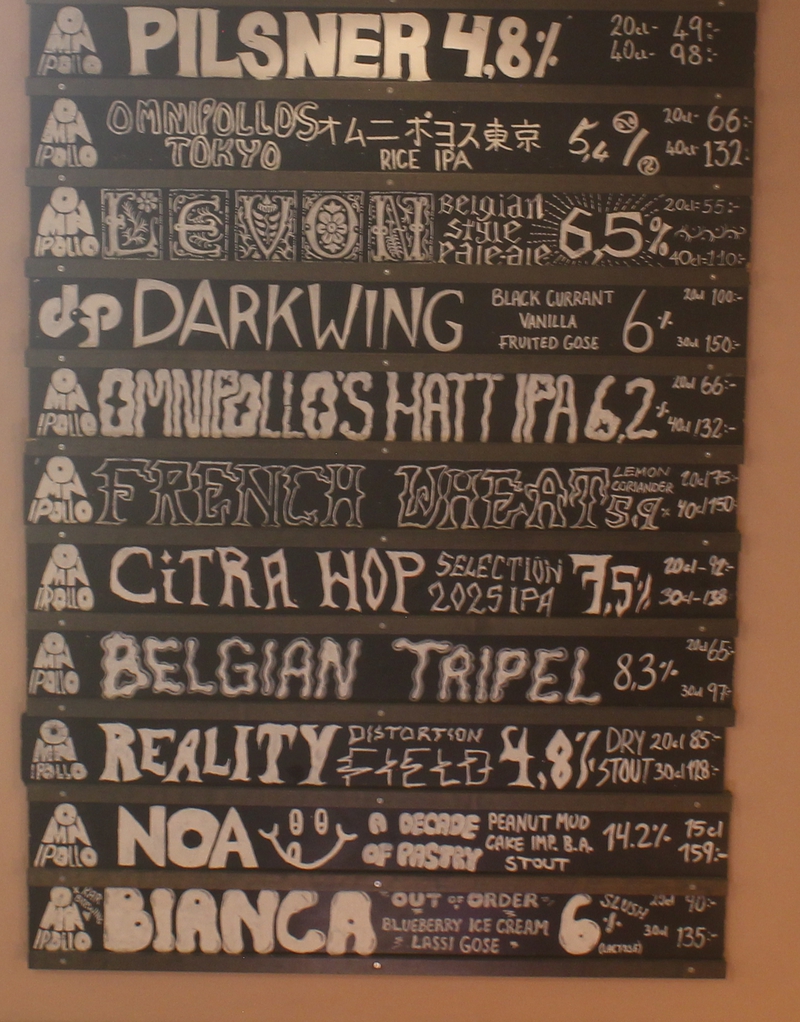 OMNIPOLLO PILSNER 4,8% 20cl- 49:-
40cl- 98:-
OMNIPOLLO OMNIPOLLOS TOKYO オムニポヨス東京 RICE IPA 5,4% 20cl- 66:-
40cl- 132:-
OMNIPOLLO LEVON Belgian style Pale-ale 6,5% 20cl=55:-
40cl=110:-
dp DARKWING BLACK CURRANT VANILLA FRUITED GOSE 6% 20cl 100:-
30cl 150:-
OMNIPOLLO OMNIPOLLO'S HATT IPA 6,2% 20cl 66:-
40cl 132:-
OMNIPOLLO FRENCH WHEAT LEMON CORIANDER 5,9% 20cl 75:-
40cl 150:-
OMNIPOLLO CiTRA HOP SELECTION 2025 IPA 7,5% 20cl- 92:-
30cl-138:-
OMNIPOLLO BELGIAN TRIPEL 8,3% 20cl 65:-
30cl 97:-
OMNIPOLLO REALITY DISTORTION FIELD 4,8% DRY STOUT 20cl 85:-
30cl 128:-
OMNIPOLLO NOA A DECADE OF PASTRY PEANUT MUD CAKE IMP. B.A. STOUT 14.2% 15cl
159:-
OMNIPOLLO BIANCA OUT OF ORDER BLUEBERRY ICE CREAM LASSI GOSE 6% (LACTOSE) SLUSH
30cl 135:-